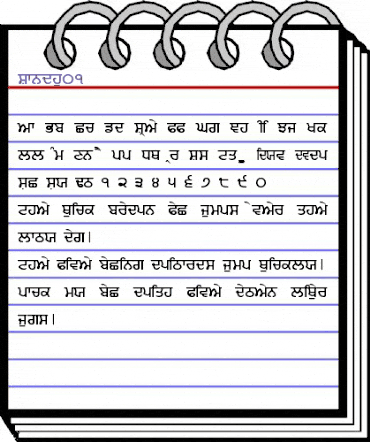 ਸ਼ਾਨਦਹੁ੦੧
ਆ ਭਬ ਛਚ ਡਦ ਸ਼੍ਰਅੇ ਫਫ ਘਗ ਵਹ ੀਿ ਝਜ ਖਕ
ਲਲ ੰਮ ਣਨੈ ਪਪ ਧਥ ੍ਰਰ ਸ਼ਸ ਟਤੂੁ ਯਿਵ ਦਵਦਪ
ਸ਼ਛ ਸ਼ਯ ਢਠ ੧ ੨ ੩ ੪ ੫ ੬ ੭ ੮ ੯ ੦
ਟਹਅੇ ਥੁਚਿਕ ਬਰੇਦਪਨ ਫੇਛ ਜੁਮਪਸ ੋਵਅੇਰ ਤਹਅੇ
ਲਾਠਯ ਦੇਗ।
ਟਹਅੇ ਫਵਿਅੇ ਬੇਛਨਿਗ ਦਪਠਿਾਰਦਸ ਜੁਮਪ ਥੁਚਿਕਲਯ।
ਪਾਚਕ ਮਯ ਬੇਛ ਦਪਤਿਹ ਫਵਿਅੇ ਦੇਠਅੇਨ ਲਥਿੁਰ
ਜੁਗਸ।